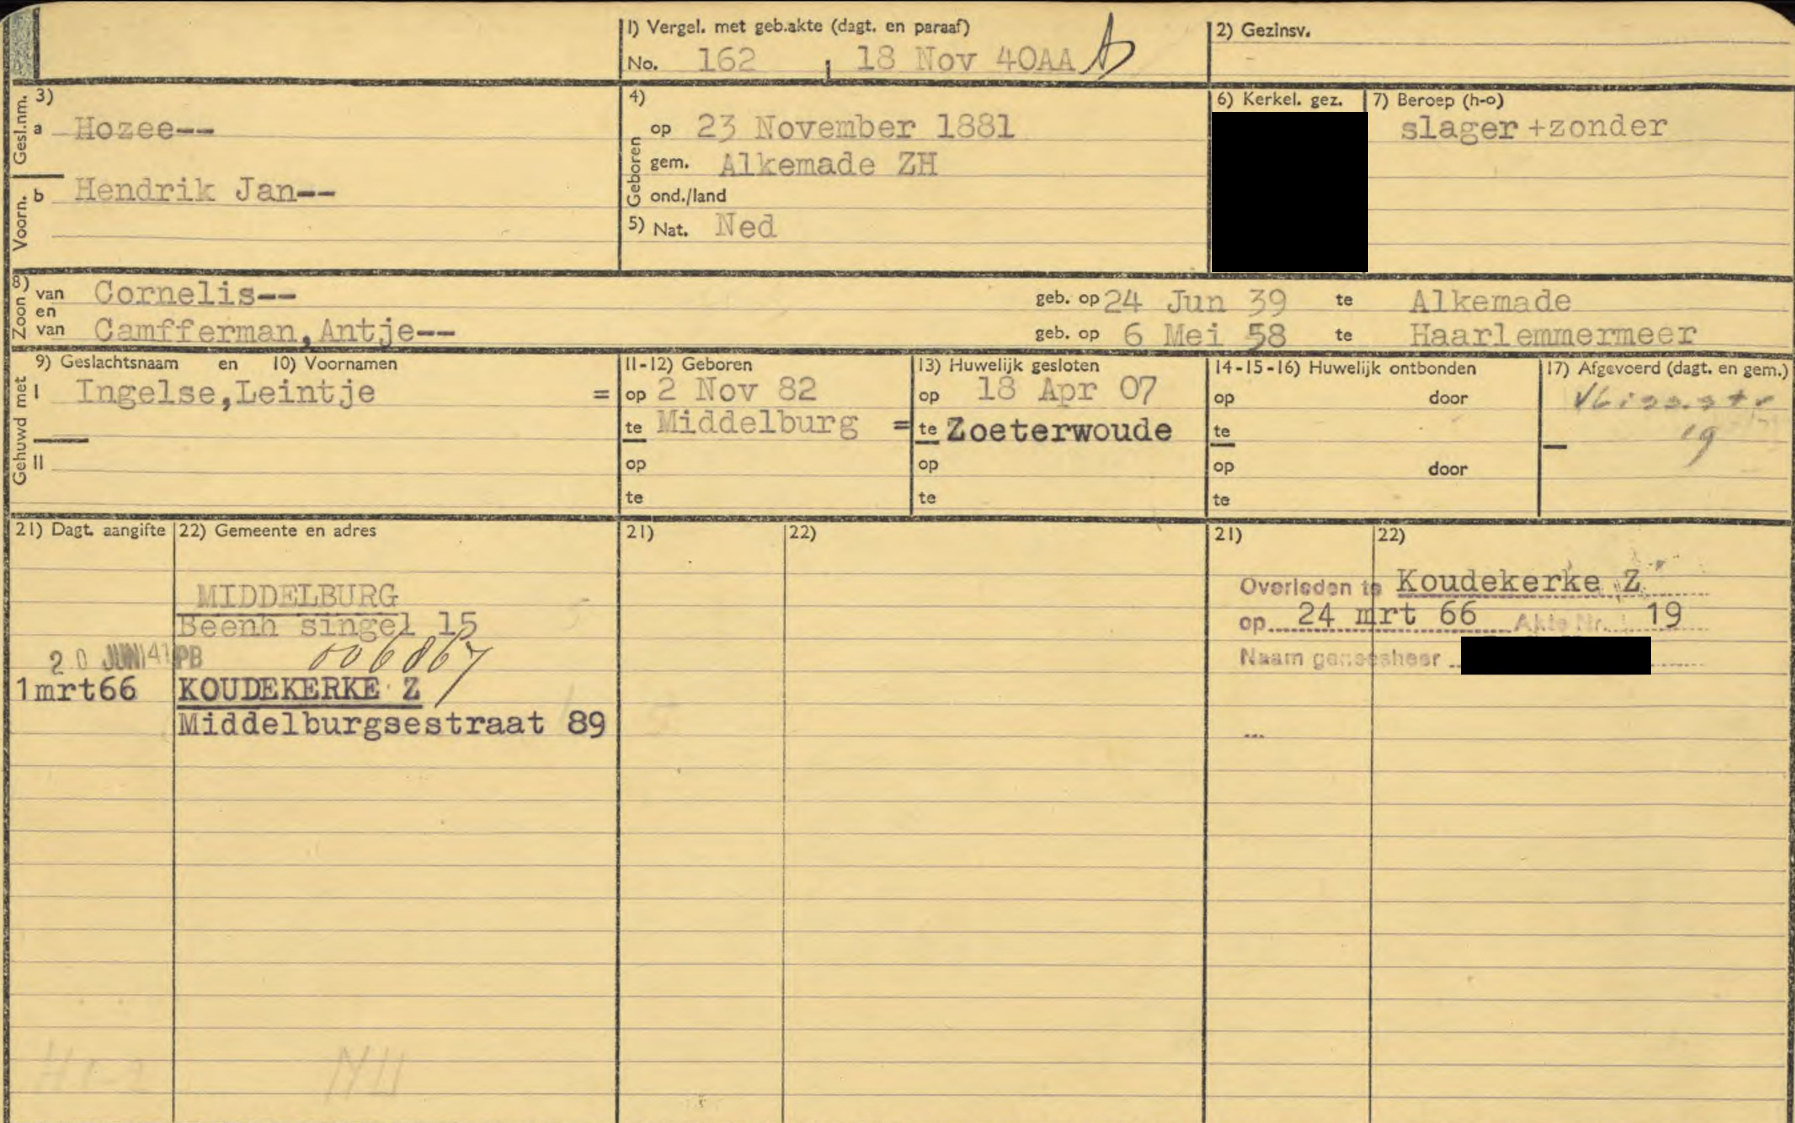 1) Vergel. met geb.akte (dagt. en paraaf)
No. 162 , 18 Nov 40AA
2) Gezinsv.
Gesl.nm.
3)
a Hozee--
Voorn.
b Hendrik Jan--
4)
Geboren
op 23 November 1881
gem. Alkemade ZH
ond./land
5) Nat. Ned
6) Kerkel. gez.
7) Beroep (h-o)
slager +zonder
8)
Zoon
van Cornelis-- geb. op 24 Jun 39 te Alkemade
en
van Camfferman,Antje-- geb. op 6 Mei 58 te Haarlemmermeer
Gehuwd met
9) Geslachtsnaam en 10) Voornamen
I Ingelse,Leintje =
II
11-12) Geboren
op 2 Nov 82
te Middelburg =
op
te
13) Huwelijk gesloten
op 18 Apr 07
te Zoeterwoude
op
te
14-15-16) Huwelijk ontbonden
op door
te
op door
te
17) Afgevoerd (dagt. en gem.)
19
21) Dagt. aangifte 22) Gemeente en adres
MIDDELBURG
Beenh singel 15
20 JUNI 41 PB 006867
1mrt66 KOUDEKERKE Z
Middelburgsestraat 89
21) 22)
21) 22)
Overleden te Koudekerke Z
op 24 mrt 66 Akte Nr. 19
Naam geneesheer